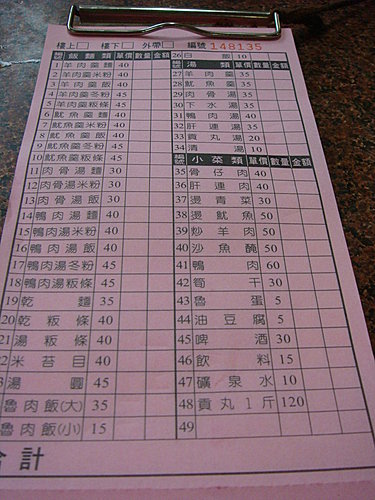 樓上□ 樓下□ 外帶□ 編號 148135
編號 飯麵類 單價 數量 金額
1 羊肉羹麵 40
2 羊肉羹米粉 40
3 羊肉羹飯 40
4 羊肉羹冬粉 45
5 羊肉羹粄條 45
6 魷魚羹麵 40
7 魷魚羹米粉 40
8 魷魚羹飯 40
9 魷魚羹冬粉 45
10 魷魚羹粄條 45
11 肉骨湯麵 30
12 肉骨湯米粉 30
13 肉骨湯飯 30
14 鴨肉湯麵 40
15 鴨肉湯米粉 40
16 鴨肉湯飯 40
17 鴨肉湯冬粉 45
18 鴨肉湯粄條 45
19 乾麵 35
20 乾粄條 40
21 湯粄條 40
22 米苔目 40
湯圓 45
魯肉飯(大) 35
魯肉飯(小) 15
合計
26 白飯 10
編號 湯類 單價 數量 金額
27 羊肉羹 35
28 魷魚羹 35
29 肉骨湯 35
30 下水湯 35
31 鴨肉湯 40
32 肝連湯 35
33 貢丸湯 20
34 清湯 10
編號 小菜類 單價 數量 金額
35 骨仔肉 40
36 肝連肉 40
37 燙青菜 30
38 燙魷魚 50
39 炒羊肉 50
40 沙魚醃 50
41 鴨肉 60
42 筍干 30
43 魯蛋 5
44 油豆腐 5
45 啤酒 30
46 飲料 15
47 礦泉水 10
48 貢丸1斤 120
49